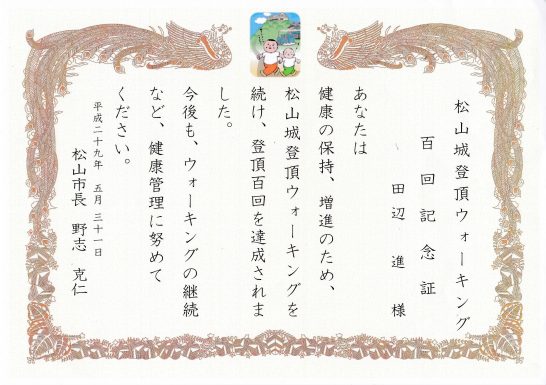 松山城登頂ウォーキング
百回記念証
田辺 進 様
あなたは
健康の保持、増進のため、
松山城登頂ウォーキングを
続け、登頂百回を達成されま
した。
今後も、ウォーキングの継続
など、健康管理に努めて
ください。
平成二十九年 五月 三十一日
松山市長 野志 克仁